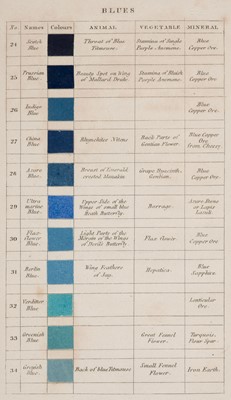 BLUES
No Names Colours ANIMAL VEGETABLE MINERAL
24 Scotch Blue Throat of Blue Titmouse. Stamina of Single Purple Anemone. Blue Copper Ore.
25 Prussian Blue Beauty Spot on Wing of Mallard Drake. Stamina of Bluish Purple Anemone. Blue Copper Ore.
26 Indigo Blue Blue Copper Ore.
27 China Blue Rhynchites Nitens Back Parts of Gentian Flower. Blue Copper Ore from Chessy
28 Azure Blue. Breast of Emerald crested Manakin Grape Hyacinth, Gentian. Blue Copper Ore.
29 Ultra marine Blue. Upper Side of the Wings of small blue Heath Butterfly. Borrage. Azure Stone or Lapis Lazuli.
30 Flax-flower Blue. Light Parts of the Margin of the Wings of Devil's Butterfly. Flax flower. Blue Copper Ore
31 Berlin Blue. Wing Feathers of Jay. Hepatica. Blue Sapphire
32 Verditter Blue Lenticular Ore.
33 Greenish Blue Great Fennel Flower. Turquois, Fluor Spar.
34 Greyish Blue. Back of blue Titmouse Small Fennel Flower. Iron Earth.